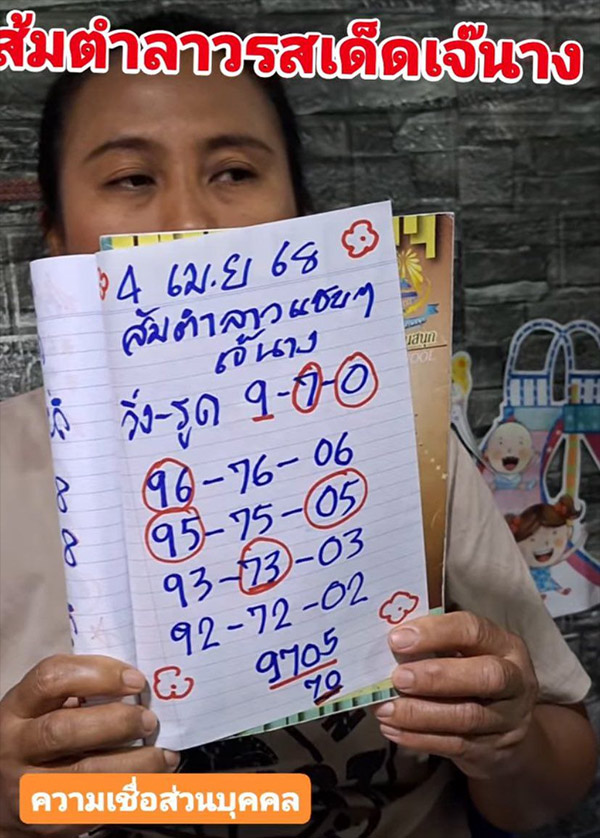 ส้มตำลาวรสเด็ดเจ๊นาง
4 เม.ย 68
ส้มตำลาวแซบๆ
เจ๊นาง
วิ่ง-รูด 9-7-0
96-76-06
95-75-05
93-73-03
92-72-02
9705
70
ความเชื่อส่วนบุคคล